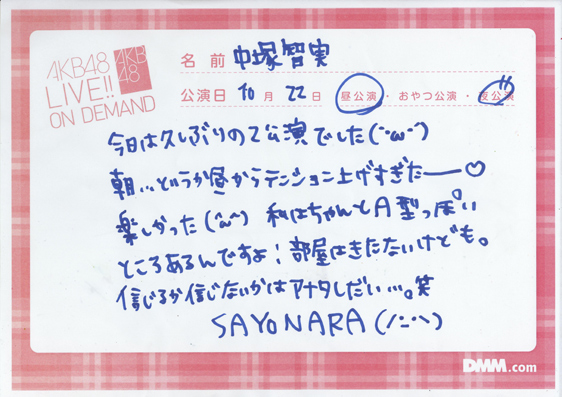 AKB48
LIVE!!
ON DEMAND
AKB
48
名前 中塚智実
公演日 10月 22日 昼公演・おやつ公演・夜公演
今日は久しぶりの2公演でした(˘ω˘)
朝…というか昼からテンション上げすぎたー♡
楽しかった(^ω^) 私はちゃんとA型っぽい
ところあるんですよ!部屋はきたないけども。
信じるか信じないかはアナタしだい…。笑
SAYONARA(/-_-\)
DMM.com